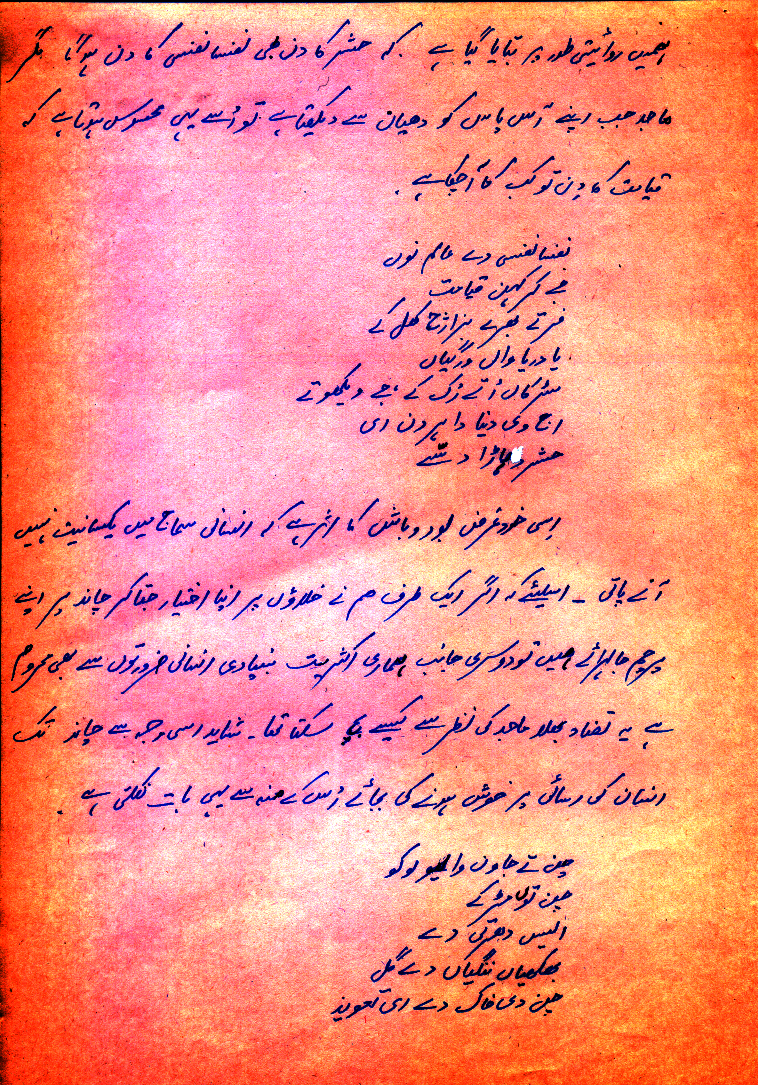 ہمیں روائیتی طور پر بتایا گیا ہے کہ حشر کا دن بھی نفسا نفسی کا دن ہو گا مگر
ماجد جب اپنے آس پاس کو دھیان سے دیکھتا ہے تو اُسے یہی محسوس ہوتا ہے کہ
قیامت کا دِن تو کب کا آ چکا ہے ۔
نفسا نفسی دے عالم نوں
جے کر کہن قیامت
فر تے بھرے بزار چ کھل کے
یا دریا واں ورگیاں
سڑکاں اُتے رُک کے ، جے ویکھو تے
اج دی دنیا دا ہر دن ای
حشر دیہاڑا دسّے
اِسی خود غرض بود و باش کا اثر ہے کہ انسانی سماج میں یکسانیت نہیں
آنے پاتی ۔ اسلیئے کہ اگر ایک طرف ہم نے خلاؤں پر اپنا اختیار جتا کر چاند پر اپنے
پرچم جا لہرائے ہیں تو دوسری جانب ہماری اکثریت بنیادی انسانی ضرورتوں سے بھی محروم
ہے یہ تضاد بھلا ماجد کی نظر سے کیسے بچ سکتا تھا ۔ شاید اسی وجہ سے چاند تک
انسان کی رسائی پر خوش ہونے کی بجائے اُس کے منہ سے یہی بات نکلتی ہے ۔
چن تے جاون والیو لوکو
چن توں مڑ کے
ایس دھرتی دے
بھکھیاں ننگیاں دے گل
چن دی خاک دے ای تعویز